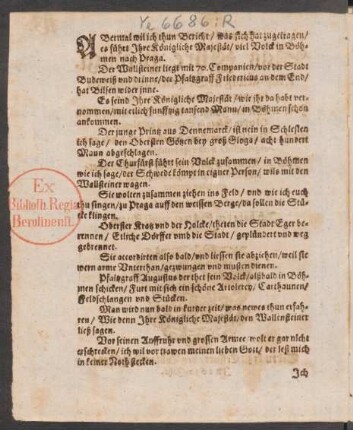 Ye 6686:R
ABermal wil ich thun Bericht / was sich hat zugetragen /
es führt Ihre Königliche Majestät / viel Volck in Böh-
men nach Praga.
Der Wallsteiner liegt mit 70. Companien / vor der Stadt
Budeweiß und drinne / der Pfaltzgraff Friedericus an dem End /
hat Bilsen wider inne.
Es seind Ihre Königliche Majestät / wie ihr da habt ver-
nommen / mit etlich funfftzig tausend Mann / in Böhmen schon
ankommen.
Der junge Printz aus Dennemarck / ist nein in Schlesien
ich sage / den Obersten Götzen bey groß Glogä / acht hundert
Mann abgeschlagen.
Der Churfürst führt sein Volck zusammen / in Böhmen
wie ich sage / der Schwede kömpt in eigner Person / wils mit den
Wallsteiner wagen.
Sie wolten zusammen ziehen ins Feld / und wie ich euch
thu singen / zu Praga auff den weissen Berge / da sollen die Stü-
cke klingen.
Oberster Kratz und der Holcke / theten die Stadt Eger be-
rennen / Etliche Dörffer umb die Stadt / geplündert und weg
gebrennet.
Sie accordirten also bald / und liessen sie abziehen / weil sie
wern arme Unterthan / gezwungen und musten dienen.
Pfaltzgraff Augustus der thet sein Volck / alsbald in Böh-
men schicken / Furt mit sich ein schöne Artolerey / Carthaunen /
Feldschlangen und Stücken.
Man wird nun bald in kurtzer zeit / was newes thun erfah-
ren / Wie denn Ihre Königliche Majestät / den Wallensteiner
ließ sagen.
Vor seinen Auffruhr und grossen Armee / wolt er gar nicht
erschrecken / ich wil vor trawen meinen lieben Gott / der leß mich
in keiner Noth stecken.
Ich
Ex
Biblioth. Regia
Berolinensi.